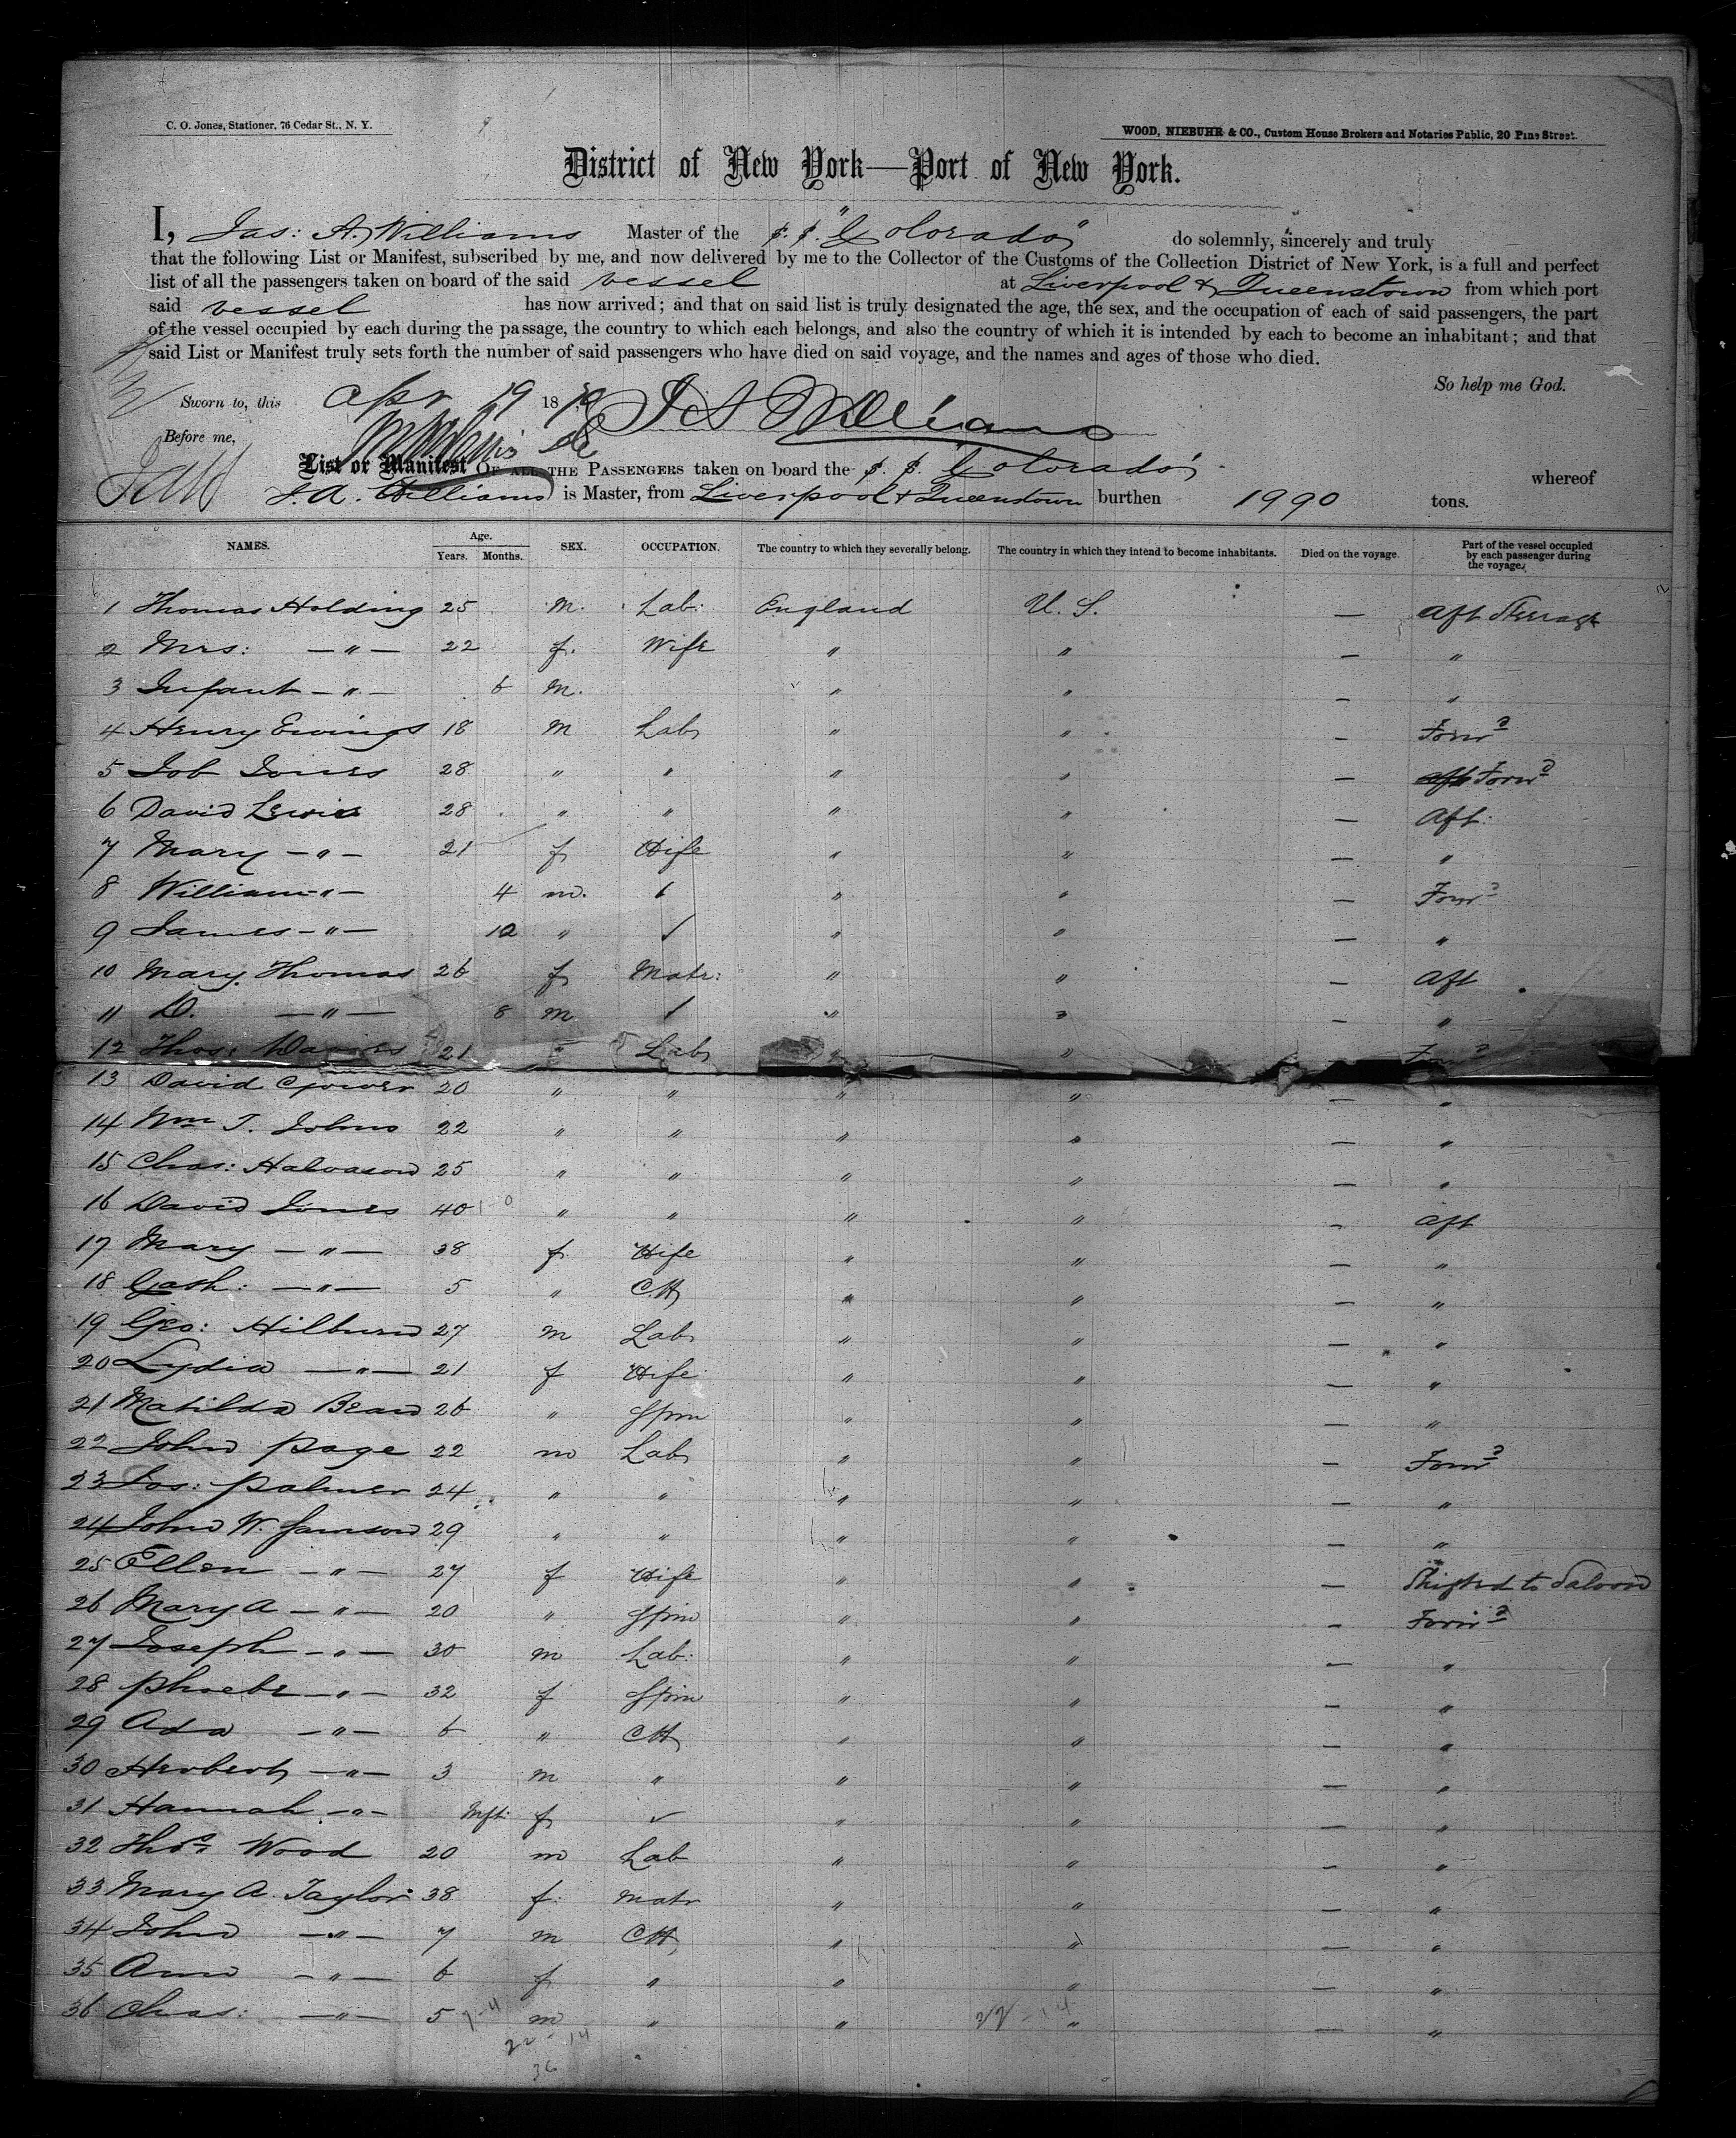 C. O. Jones, Stationer, 76 Cedar St., N. Y.
WOOD, NIEBUHR & CO., Custom House Brokers and Notaries Public, 20 Pine Street.
District of New York—Port of New York.
I, Jas: A. Williams Master of the S. S. "Colorado" do solemnly, sincerely and truly
that the following List or Manifest, subscribed by me, and now delivered by me to the Collector of the Customs of the Collection District of New York, is a full and perfect
list of all the passengers taken on board of the said vessel at Liverpool & Queenstown from which port
said vessel has now arrived; and that on said list is truly designated the age, the sex, and the occupation of each of said passengers, the part
of the vessel occupied by each during the passage, the country to which each belongs, and also the country of which it is intended by each to become an inhabitant; and that
said List or Manifest truly sets forth the number of said passengers who have died on said voyage, and the names and ages of those who died.
So help me God.
Sworn to, this Apr 19 18 J A Williams
Before me,
List or Manifest OF ALL THE PASSENGERS taken on board the S. S. Colorado whereof
J. A. Williams is Master, from Liverpool & Queenstown burthen 1990 tons.
NAMES. Age. Years. Months. SEX. OCCUPATION. The country to which they severally belong. The country in which they intend to become inhabitants. Died on the voyage. Part of the vessel occupied by each passenger during the voyage.
1 Thomas Holding 25 M. Lab: England U. S. — Aft Sterrage
2 Mrs: — " — 22 f. Wife " " — "
3 Infant — " — 6 M. " " — "
4 Henry Ewings 18 M Lab " " — Forwd
5 Job Jones 28 " " " " — Forwd
6 David Lewis 28 " " " " — Aft:
7 Mary — " — 21 f Wife " " — "
8 William — " — 4 m. " " — Forwd
9 James — " — 10 " ✓ " " — "
10 Mary Thomas 26 f Matr: " " — Aft
11 D. — " — 8 m " " — "
12 Thos: Davies 21 Lab " " — Forwd
13 David Gower 20 " " " " — "
14 Wm T. Johns 22 " " " " — "
15 Chas: Halvason 25 " " " " — "
16 David Jones 40 " " " " — Aft
17 Mary — " — 38 f Wife " " — "
18 Cash: — " — 5 " Ch " " — "
19 Geo: Hilburn 27 m Lab " " — "
20 Lydia — " — 21 f Wife " " — "
21 Matilda Bean 26 " Spin " " — "
22 John Page 22 m Lab " " — Forwd
23 Jos: Palmer 24 " " " " — "
24 John W. Jamson 29 " " " " — "
25 Ellen — " — 27 f Wife " " — Shifted to Saloon
26 Mary A — " — 20 " Spin " " — Forwd
27 Joseph — " — 30 m Lab: " " — "
28 Phoebe — " — 32 f Spin " " — "
29 Ada — " — 6 " Ch " " — "
30 Herbert — " — 3 m " " " — "
31 Hannah — " — Inft: f ✓ " " — "
32 Thos Wood 20 m Lab " " — "
33 Mary A. Taylor 38 f. Matr " " — "
34 John — " — 7 m Ch " " — "
35 Ann — " — 6 f " " " — "
36 Chas: — " — 5 m " " " — "
22 - 14
22 - 14
36